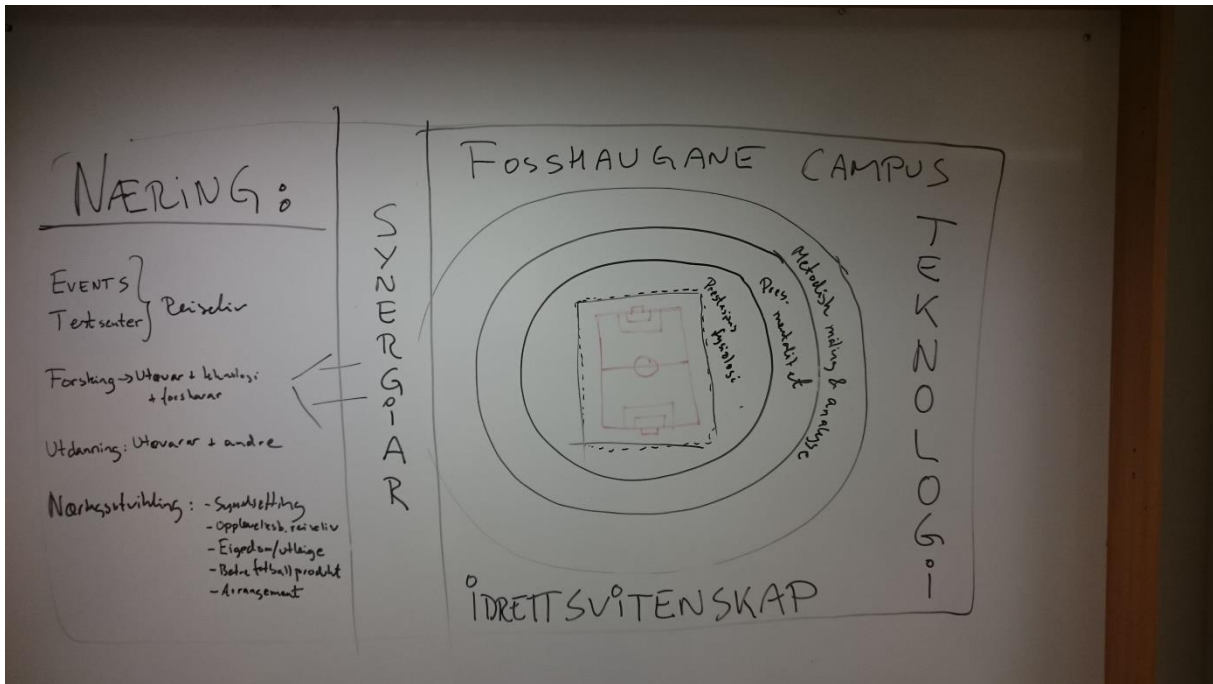 NÆRING:
EVENTS
Testsenter
Reiseliv
Forsking → Utøvar + teknologi
+ forskarar
Utdanning: Utøvarar + andre
Næringsutvikling: - Synleggjering
- Opplevelsesb. reiseliv
- Eigedom/utleige
- Betre fotball produkt
- Arrangement
SYNERGIAR
FOSSHAUGANE CAMPUS
Prestasjons
fysiologi
Pres. mentalitet
Metodisk måling & analyse
TEKNOLOGI
IDRETTSVITENSKAP